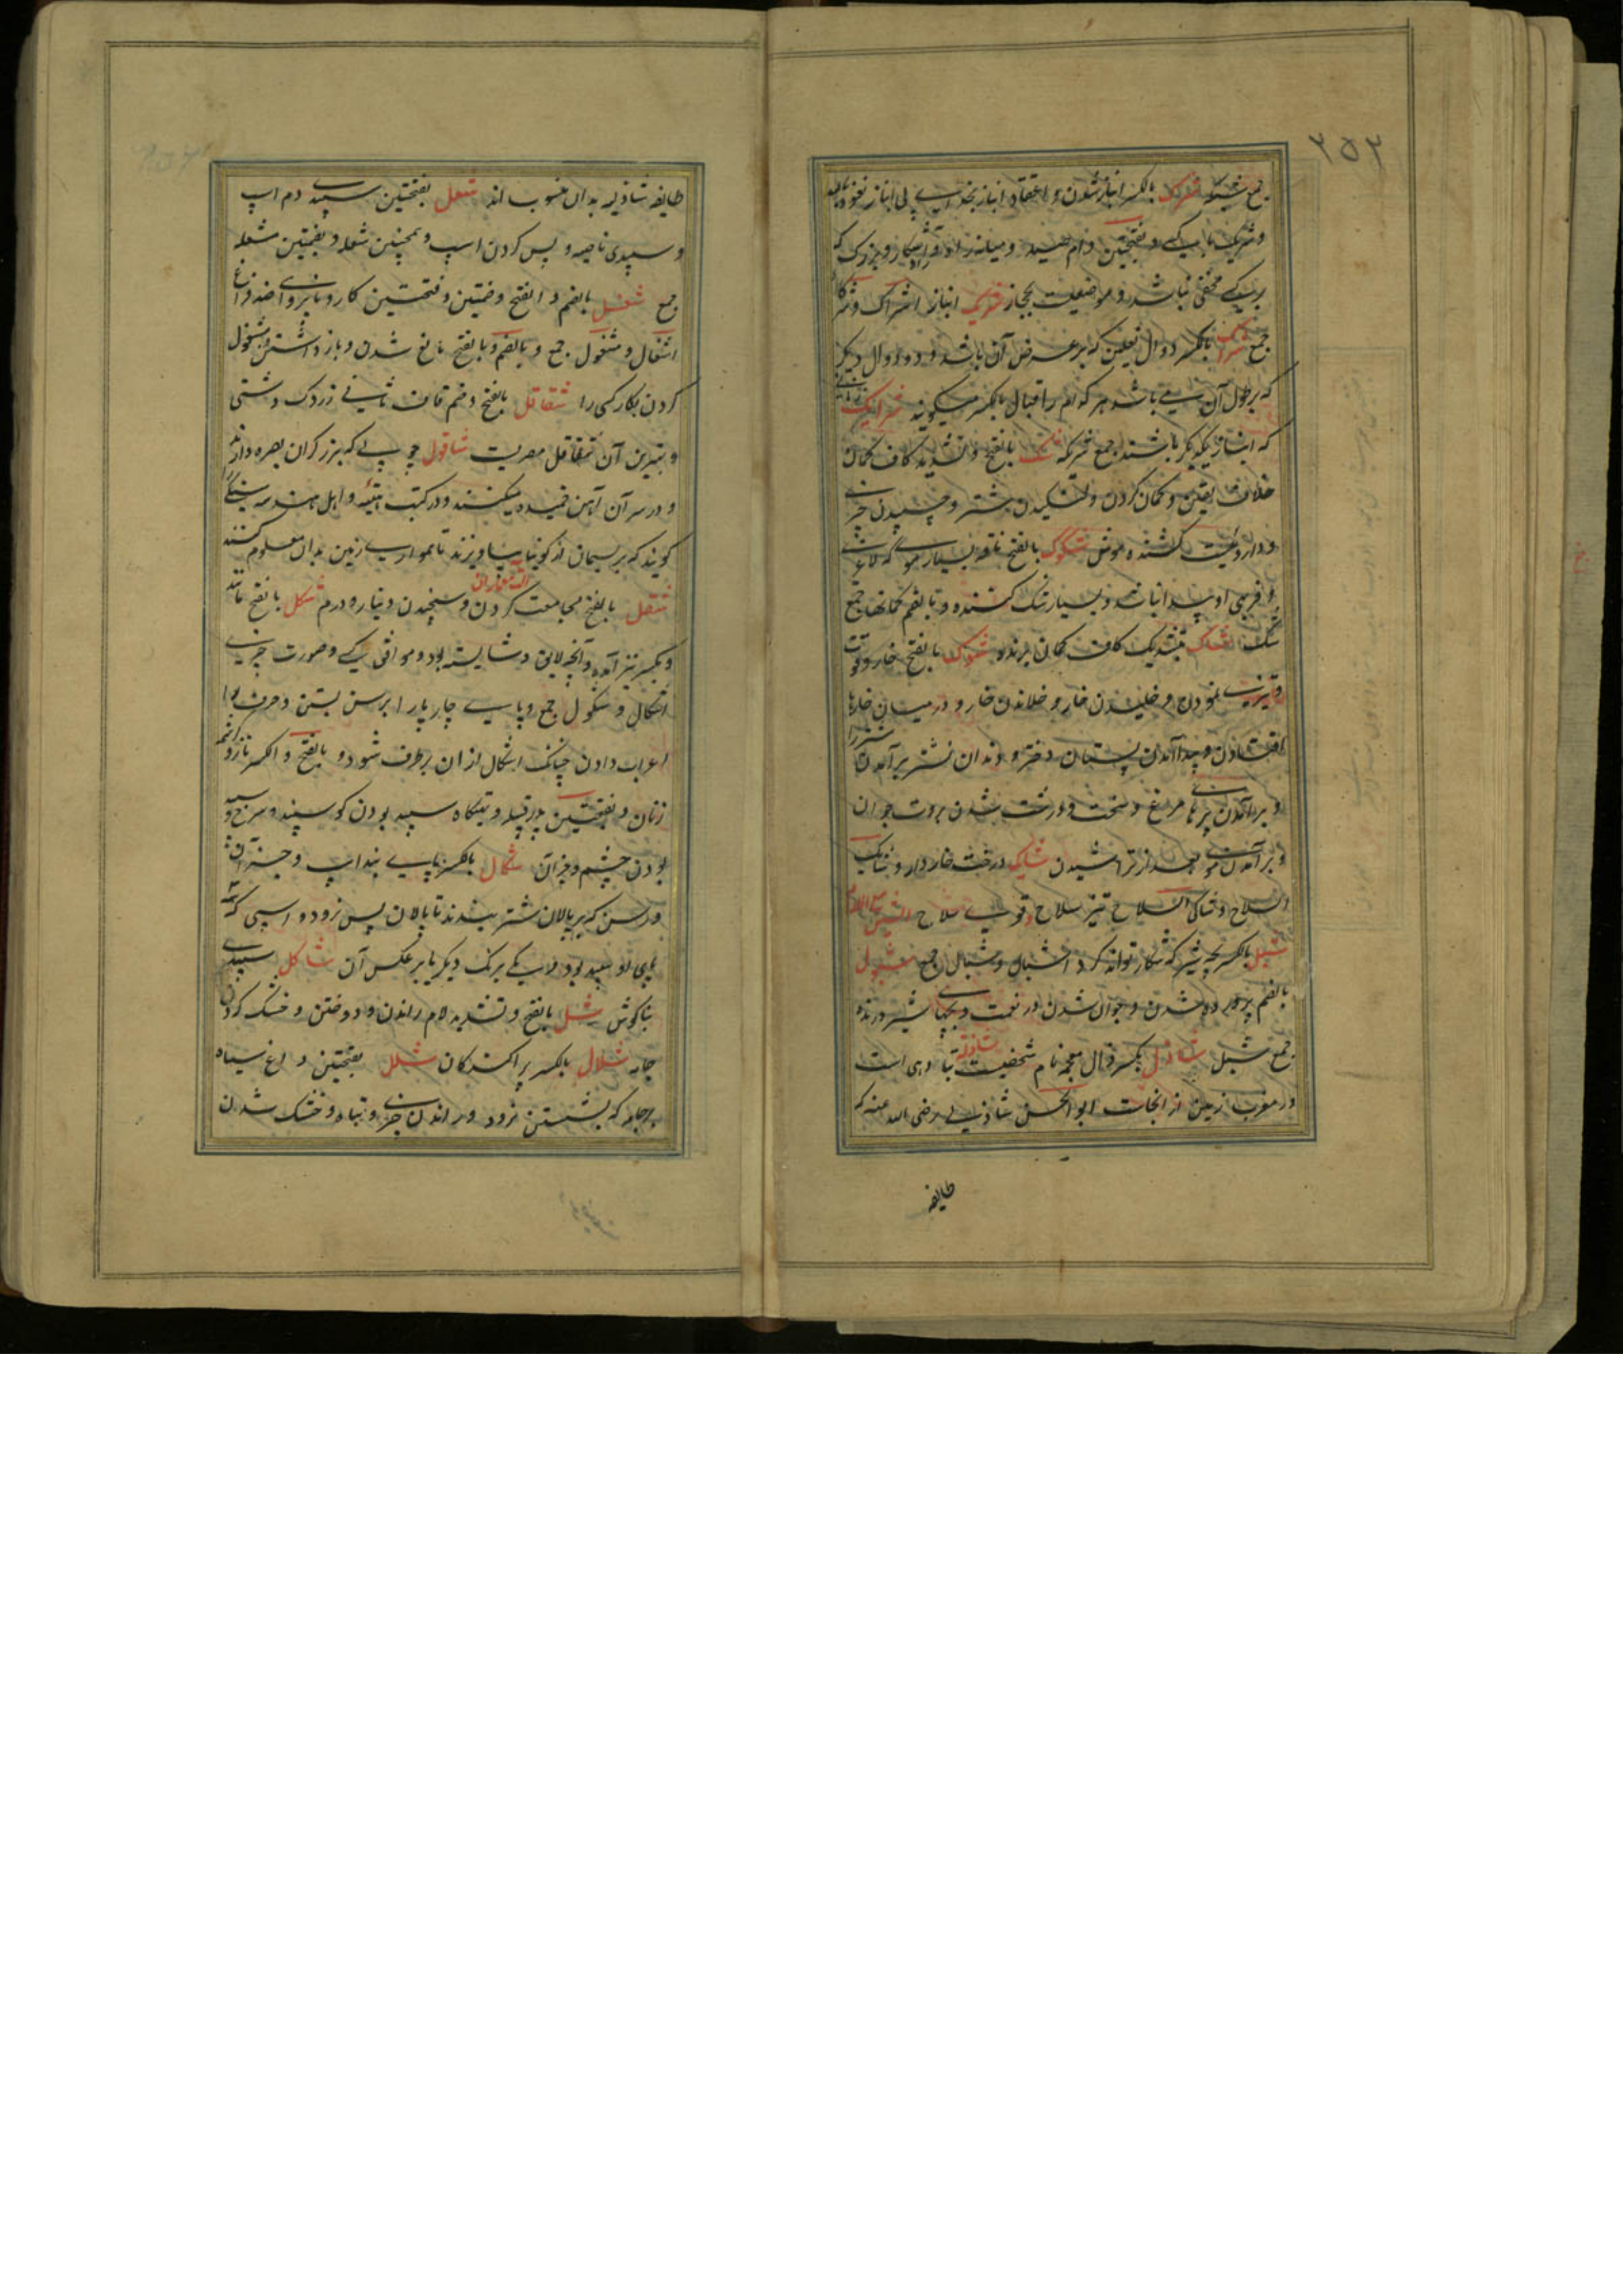 ۲۵۳
جمع شبکه شرک بالکسر انباز شدن و اعتقاد انباز بخدای بی انباز نعوذ بالله
و شریک با کسی و بفتحتین دام صید و میانه راه و آشکار و بزرگ که
بر کسی مخفی نباشد و موضعیست بحجاز شریک انباز اشراک و شرکا
جمع شراک بالکسر دوال نعلین که بر عرض آن باشد و دو دوال دیگر
که بر طول آن می باشد هر کدام را قبال بالکسر میگویند شرایک زنانی
که انباز یکدیگر باشند جمع شریکه شک بالفتح و تشدید کاف گمان
خلاف یقین و گمان کردن و لنگیدن شتر و چسپیدن چیزی
و داروئیست کشنده موش شکوک بالفتح ناقه بسیار موی که لاغری
و فربهی او پیدا نباشد و بسیار شک کننده و بالضم گمانها جمع
شک شاک بتشدید کاف گمان برنده شوک بالفتح خار و قوت
و تیزی نمودن و خلیدن خار و خلاندن خار و در میان خارها
افتادن و پیدا آمدن پستان دختر و دندان نشتر برآمدن شتر را
و برآمدن پرهای مرغ و سخت و درشت شدن بروت جوان
و برآمدن موی بعد از تراشیدن شایک درخت خاردار و شایک
السلاح و شاکی السلاح تیز سلاح و قوی سلاح الشین مع اللام
شبل بالکسر بچه شیر که شکار تواند کرد اشبال و شبال جمع شبول
بالضم پرورده شدن و جوان شدن در نعمت و بچهای شیر درنده
جمع شبل شاذل بکسر ذال معجمه نام شخصیست شاذله دهی است
در مغرب زمین از انجاست ابو الحسن شاذلی رضی الله عنه که
طایفه
طایفه شاذلیه بدان منسوب اند شعل بفتحتین سپیدی دم اسپ
و سپیدی ناصیه و پس گردن اسپ و همچنین شعله و بضمتین شعله
جمع شغل بالضم و الفتح و ضمتین و فتحتین کار و ناپروای ضد فراغ
اشغال و شغول جمع و بالضم و بالفتح مانع شدن و بازداشتن و مشغول
کردن بکار کسی را شقاقل بالفتح و ضم قاف ثانی زردک دشتی
و بهترین آن شقاقل مصریست شاقول چوبی که بزرگران بصره دارند
و در سر آن آهن خمیده میکنند و در کتب هیئه و اهل هندسه سنگی را
گویند که بریسمان از گونیا بیاویزند تا همواری زمین بدان معلوم کنند
آلت معماران
شقل بالفتح مجامعت کردن و سنجیدن دینار و درم شکل بالفتح مانند
و بکسر نیز آمده و آنچه لایق و شایسته بود و موافق کسی و صورت چیزی
اشکال و شکول جمع و پای چارپا را برسن بستن و حرف را
اعراب دادن چنانکه اشکال ازان برطرف شود و بالفتح و الکسر ناز و کرشمه
زنان و بفتحتین پدر قبیله و تیگاه سپید بودن گوسپند و سرخ و سپید
بودن چشم و جز آن شکال بالکسر پای بند اسپ و جز آن
و رسن که بر پالان شتر بندند تا پالان پس نرود و اسپی که سه
پای او سپید بود و یکی برنگ دیگر یا بر عکس آن شاکل سپیدی
بناگوش شل بالفتح و تشدید لام راندن و دوختن و خشک کردن
جامه شلال بالکسر پراکندگان شلل بفتحتین داغ سیاه
بر جامه که بشستن نرود و راندن چیزی و تباه و خشک شدن